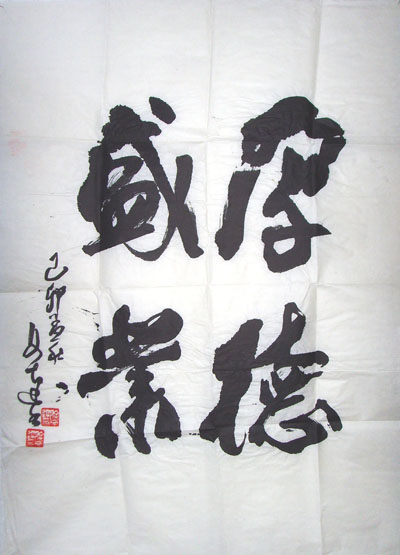 厚德
盛業
己卯孟秋